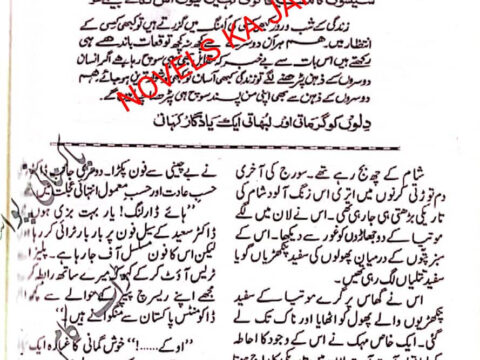 زندگی کے شب و روز کبھی کسی کی امنگ میں گزرتے ہیں تو کبھی کسی کے
انتظار میں۔ ہم ہر آن دوسرے سے کچھ نہ کچھ توقعات باندھے ہی
رکھتے ہیں اس بات سے بے خبر کہ مقابل بھی یہی سوچ رہا ہے اگر انسان
دوسروں کے ذہن پڑھنے لگے تو زندگی کبھی آسان تو کبھی
دوسروں کے ذہن سے بھی اپنی من پسند سوچ ہی پڑھنے
دلوں کو گرماتی اور لبھاتی ایک یادگار کہانی
NOVELS KA JA
شام کے چھ بج رہے تھے۔ سورج کی آخری
دم توڑتی کرنوں میں اتری اس زنگ آلود شام کی
تاریکی بڑھتی ہی جا رہی تھی۔ اس نے لان میں لگے
موتیا کے دو جھاڑوں کو غور سے دیکھا۔ اس کے
سبز پتوں کے درمیان پھولوں کی سفید پنکھڑیاں گویا
سفید تتلیاں لگ رہی تھیں۔
اس نے گھاس پر گرے موتیا کے سفید
پنکھڑیوں والے پھول کو اٹھایا اور ناک تک لے
گئی۔ ایک خاص مہک نے اس کے وجود کا احاطہ
نے بے چینی سے فون پکڑا۔ دوسری جانب ڈاکٹر
حسب عادت اور حسب معمول انتہائی عجلت میں
"ہائے ڈارلنگ! یار بہت بڑی
ڈاکٹر سعید کے سیل فون پر بار بار ٹرائی کر رہا
لیکن اس کا فون مسلسل آف جا رہا ہے۔ پلیز
ٹریس آؤٹ کر کے کہو کہ میرے ساتھ رابطہ
مجھے اپنے ریسرچ پیپر کے حوالے سے کچھ
ڈاکومنٹس پاکستان سے منگوانے ہیں۔"
"اوکے......!" خوش گمانی کا غبارہ ایک